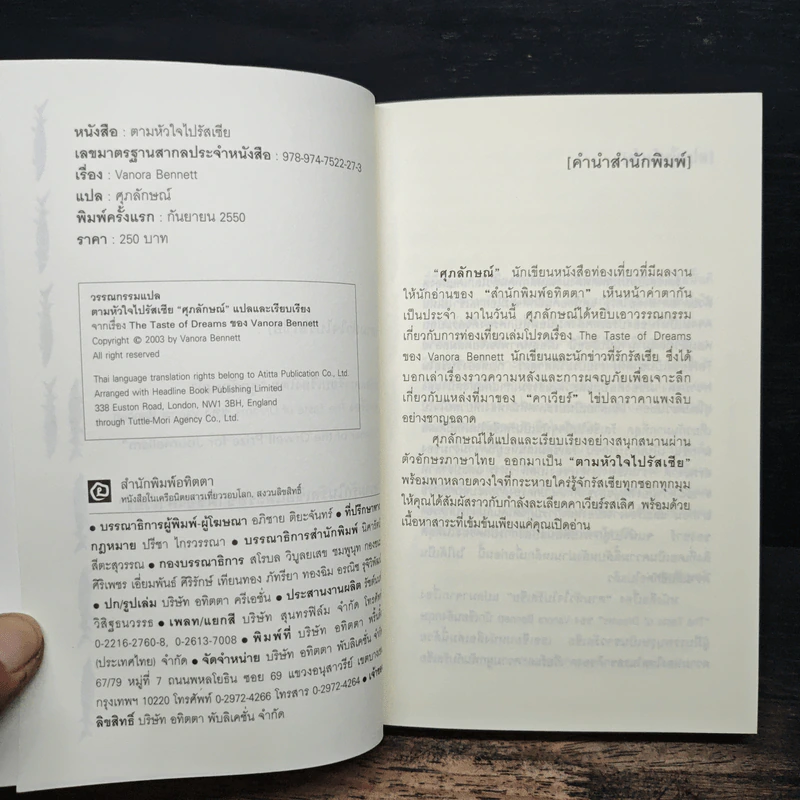 หนังสือ : ตามหัวใจไปรัสเซีย
เลขมาตรฐานสากลประจำหนังสือ : 978-974-7522-27-3
เรื่อง : Vanora Bennett
แปล : ศุภลักษณ์
พิมพ์ครั้งแรก : กันยายน 2550
ราคา : 250 บาท
วรรณกรรมแปล
ตามหัวใจไปรัสเซีย "ศุภลักษณ์" แปลและเรียบเรียง
จากเรื่อง The Taste of Dreams ของ Vanora Bennett
Copyright © 2003 by Vanora Bennett
All right reserved
Thai language translation rights belong to Atitta Publication Co., Ltd.
Arranged with Headline Book Publishing Limited
338 Euston Road, London, NW1 3BH, England
through Tuttle-Mori Agency Co., Ltd.
สำนักพิมพ์อทิตตา
หนังสือในเครือนิตยสารเที่ยวรอบโลก, สงวนลิขสิทธิ์
• บรรณาธิการผู้พิมพ์-ผู้โฆษณา อภิชาย ติยะจันทร์ • ที่ปรึกษาทาง
กฎหมาย ปรีชา ไกรวรรณา • บรรณาธิการสำนักพิมพ์
สีตะสุวรรณ • กองบรรณาธิการ สโรบล วิบูลยเสข ชมพูนุท
ศิริเพชร เอี่ยมพันธ์ ศิริรักษ์ เทียนทอง ภัทรียา ทองฉิม อรณิช
• ปก/รูปเล่ม บริษัท อทิตตา ครีเอชั่น • ประสานงานผลิต
วิสิฐธนวรรธ • เพลท/แยกสี บริษัท สุนทรฟิล์ม จำกัด
0-2216-2760-8, 0-2613-7008 • พิมพ์ที่ บริษัท อทิตตา
(ประเทศไทย) จำกัด • จัดจำหน่าย บริษัท อทิตตา พับลิเคชั่น จำกัด
67/79 หมู่ที่ 7 ถนนพหลโยธิน ซอย 69 แขวงอนุสาวรีย์
กรุงเทพฯ 10220 โทรศัพท์ 0-2972-4266 โทรสาร 0-2972-4264
ลิขสิทธิ์ บริษัท อทิตตา พับลิเคชั่น จำกัด
[คำนำสำนักพิมพ์]
"ศุภลักษณ์" นักเขียนหนังสือท่องเที่ยวที่มีผลงาน
ให้นักอ่านของ "สำนักพิมพ์อทิตตา" เห็นหน้าค่าตากัน
เป็นประจำ มาในวันนี้ ศุภลักษณ์ได้หยิบเอาวรรณกรรม
เกี่ยวกับการท่องเที่ยวเล่มโปรดเรื่อง The Taste of Dreams
ของ Vanora Bennett นักเขียนและนักข่าวที่รักรัสเซีย ซึ่งได้
บอกเล่าเรื่องราวความหลังและการผจญภัยเพื่อเจาะลึก
เกี่ยวกับแหล่งที่มาของ "คาเวียร์" ไข่ปลาราคาแพงลิบ
อย่างชาญฉลาด
ศุภลักษณ์ได้แปลและเรียบเรียงอย่างสนุกสนานผ่าน
ตัวอักษรภาษาไทย ออกมาเป็น "ตามหัวใจไปรัสเซีย"
พร้อมพาหลายดวงใจที่กระหายใคร่รู้จักรัสเซียทุกซอกทุกมุม
ให้คุณได้สัมผัสราวกับกำลังละเลียดคาเวียร์รสเลิศ พร้อมด้วย
เนื้อหาสาระที่เข้มข้นเพียงแค่คุณเปิดอ่าน